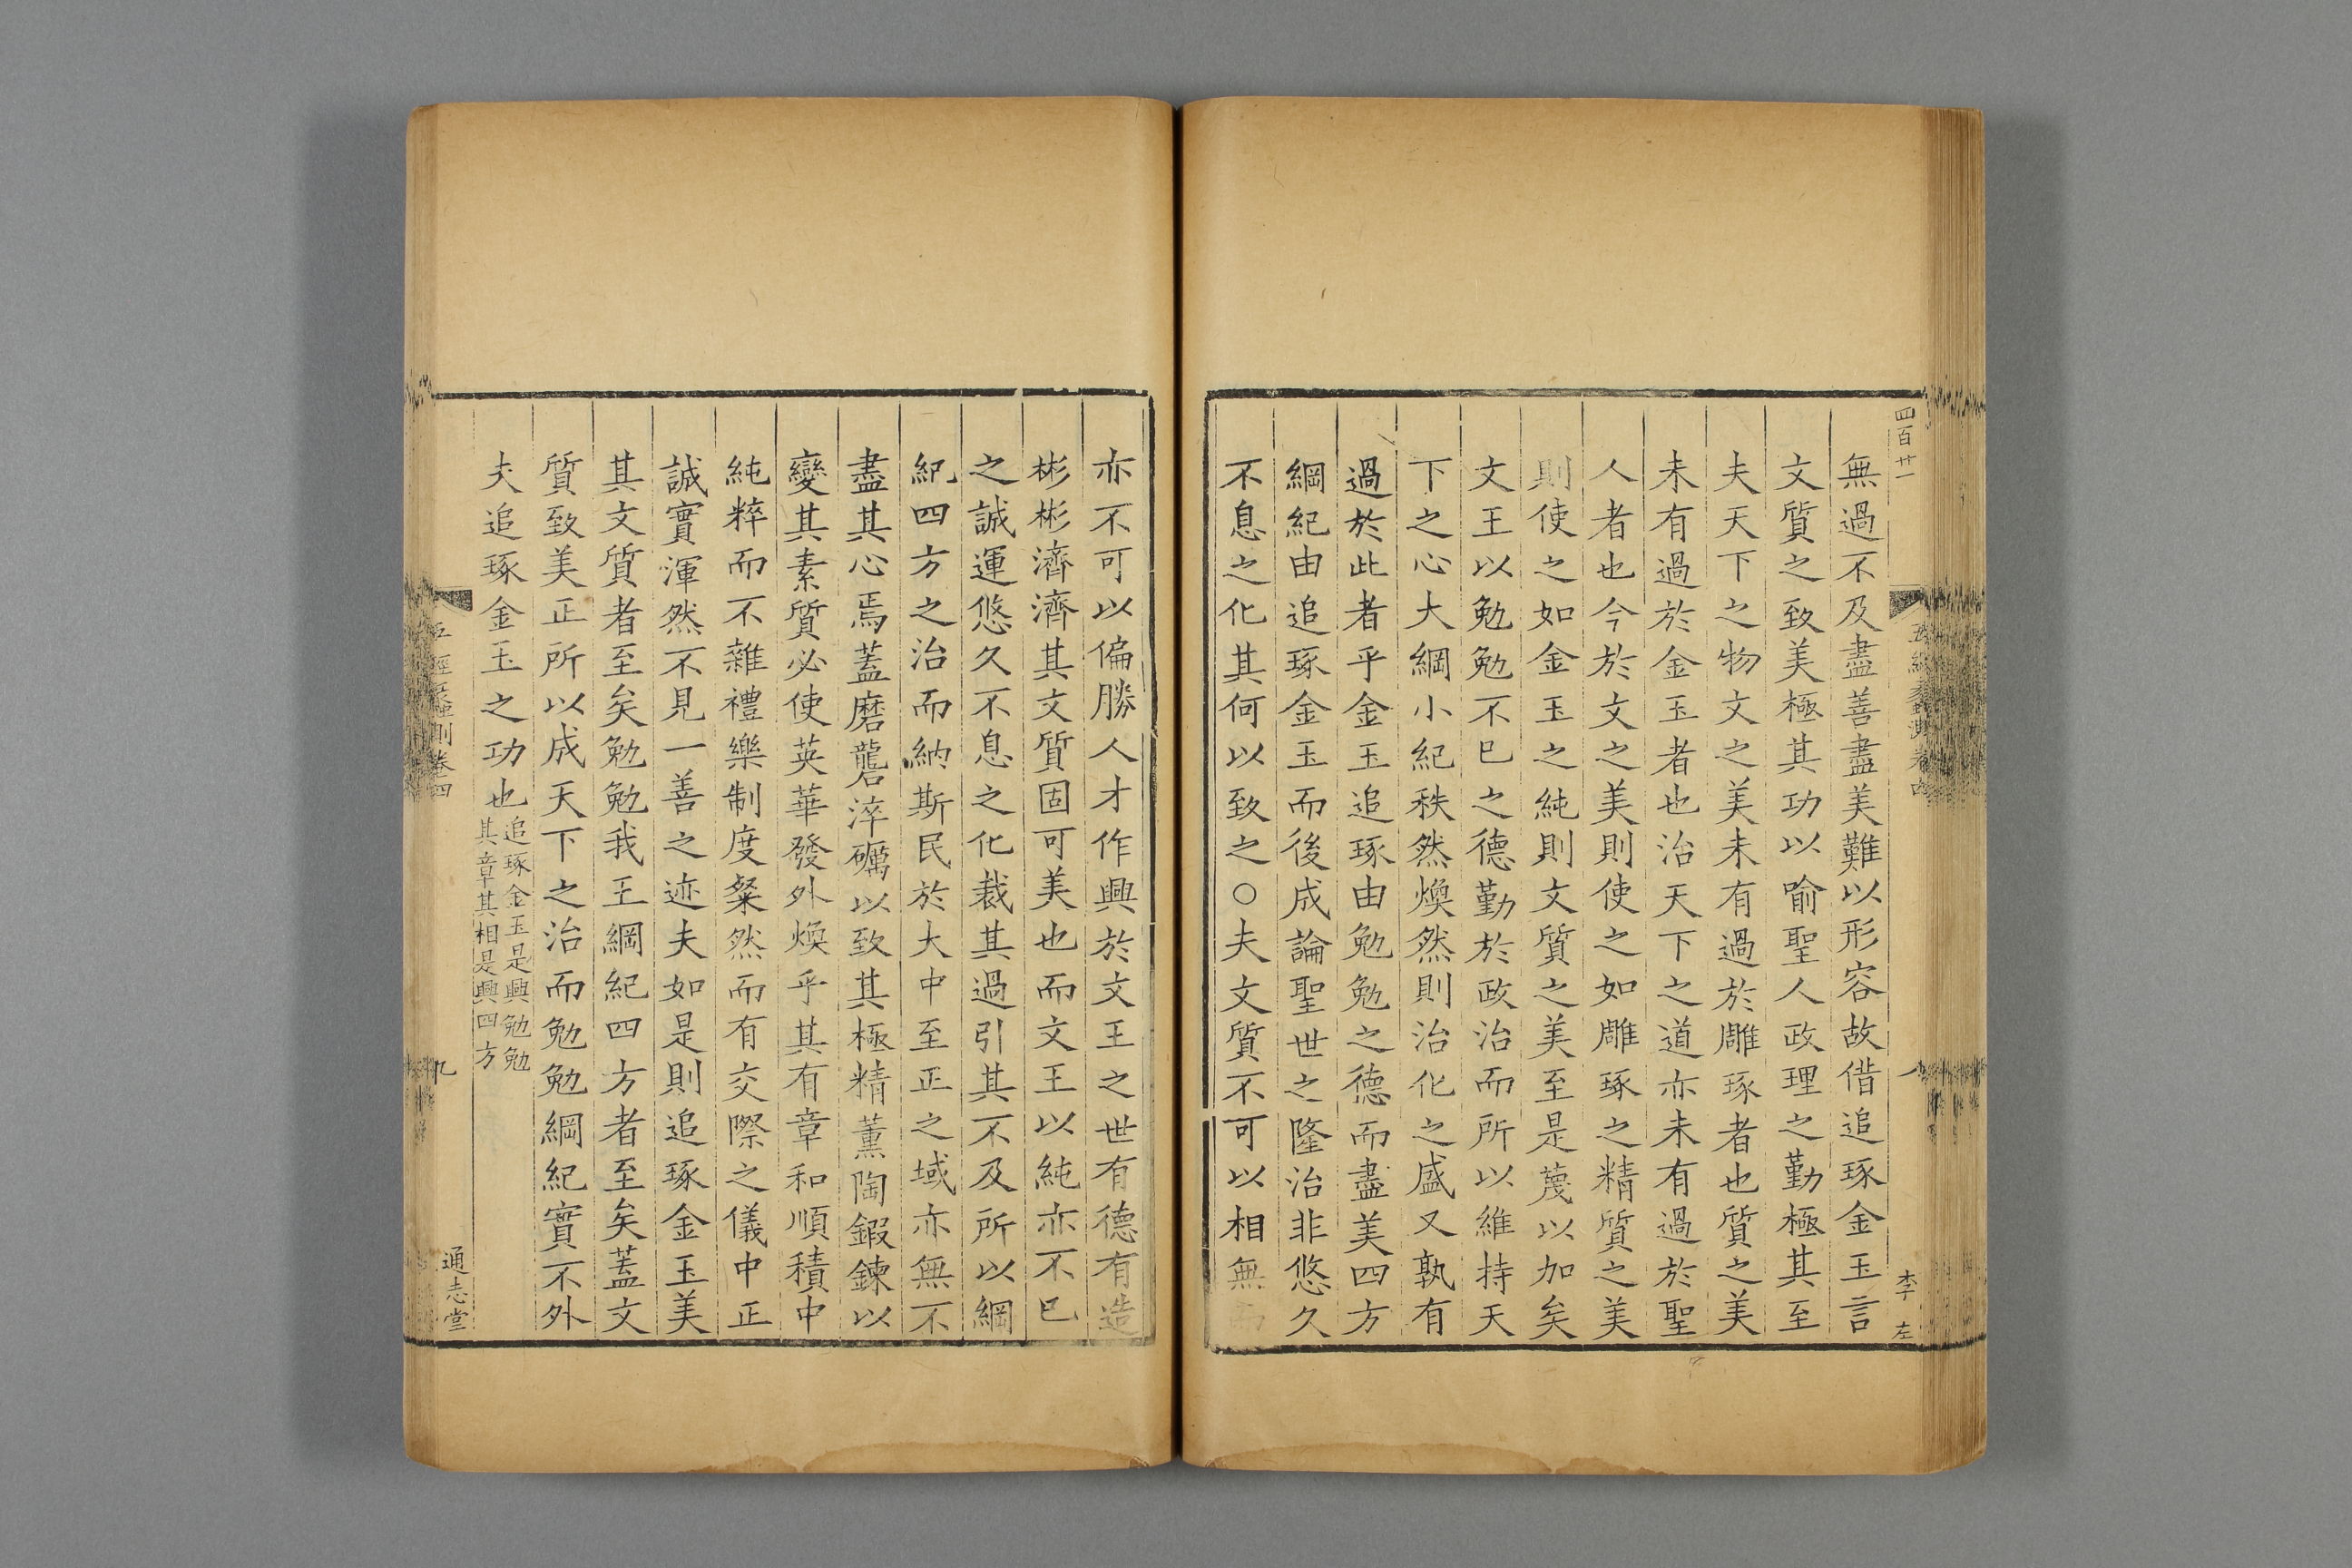 四百廿一
無過不及盡善盡美難以形容故借追琢金玉言
文質之致美極其功以喻聖人政理之勤極其至
夫天下之物文之美未有過於雕琢者也質之美
未有過於金玉者也治天下之道亦未有過於聖
人者也今於文之美則使之如雕琢之精質之美
則使之如金玉之純則文質之美至是蔑以加矣
文王以勉勉不已之德勤於政治而所以維持天
下之心大綱小紀秩然煥然則治化之盛又孰有
過於此者乎金玉追琢由勉勉之德而盡美四方
綱紀由追琢金玉而後成論聖世之隆治非悠久
不息之化其何以致之○夫文質不可以相無而
李 左
亦不可以偏勝人才作興於文王之世有德有造
彬彬濟濟其文質固可美也而文王以純亦不已
之誠運悠久不息之化裁其過引其不及所以綱
紀四方之治而納斯民於大中至正之域亦無不
盡其心焉蓋磨礱淬礪以致其極精薰陶鍜鍊以
變其素質必使英華發外煥乎其有章和順積中
純粹而不雜禮樂制度粲然而有交際之儀中正
誠實渾然不見一善之迹夫如是則追琢金玉美
其文質者至矣勉勉我王綱紀四方者至矣蓋文
質致美正所以成天下之治而勉勉綱紀實不外
夫追琢金玉之功也
追琢金玉是興勉勉
其章其相是興四方
九
通志堂